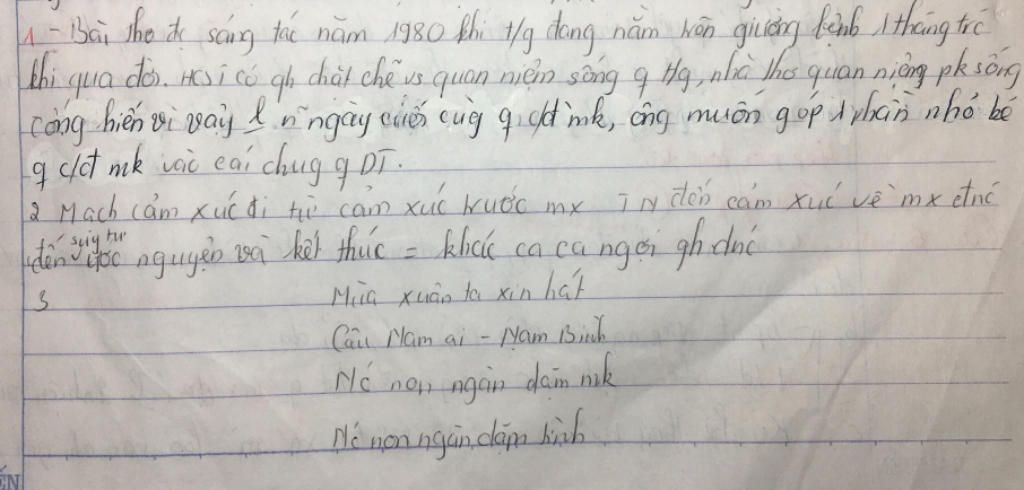 1 - Bài thơ đc sáng tác năm 1980 khi t/g đang nằm trên giường bệnh 1 tháng trc
khi qua đời. HCST có qh chặt chẽ vs quan niệm sống q t/g, nhà thơ quan niệm pk sống
cống hiến vì vậy n~ ngày cuối cùg q c/đ mk, ông muốn góp 1 phần nhỏ bé
q c/đ mk vào cái chug q DT.
2 Mạch cảm xúc đi từ cảm xúc trước mx TN đến cảm xúc về mx đnc
đến suy tư ước nguyện và kết thúc = khúc ca ca ngợi qh đnc
3 Mùa xuân ta xin hát
Câu Nam ai - Nam Bình
Nc non ngàn dặm mk
Nc non ngàn dặm tình
ẾN